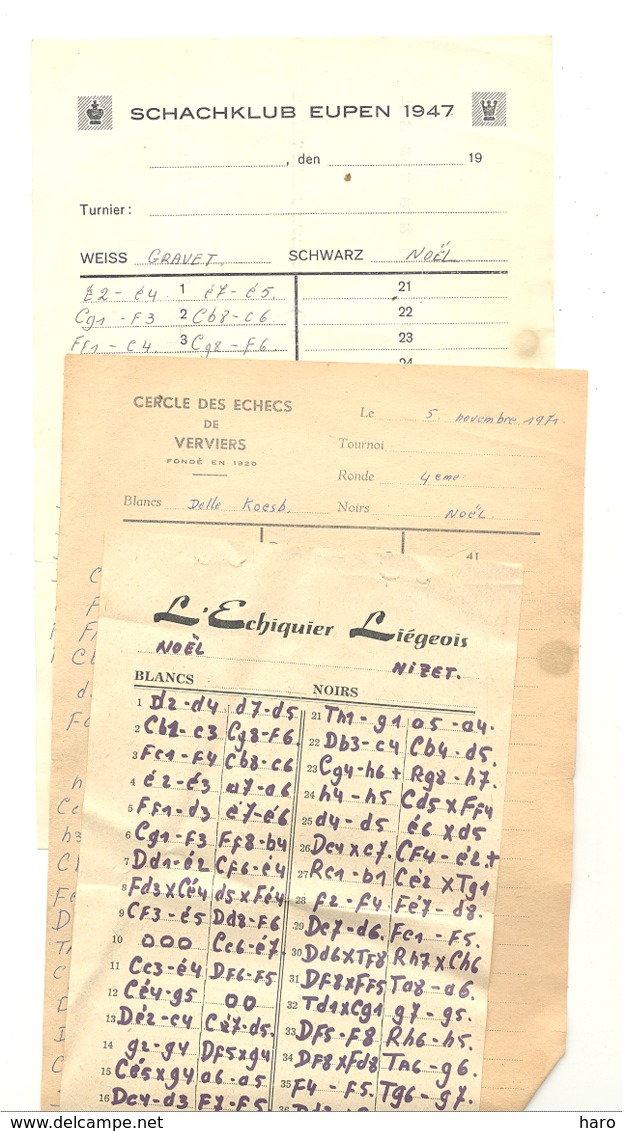 SCHACHKLUB EUPEN 1947
, den 19
Turnier:
WEISS GRAVET. SCHWARZ NOËL
é2-é4. 1 é7-é5. 21
Cg1-F3 2 Cb8-c6 22
FF1-c4. 3 Cg8-F6. 23
24
CERCLE DES ECHECS
DE
VERVIERS
FONDÉ EN 1920
Le 5 novembre 1971.
Tournoi
Ronde 4eme
Blancs Delle Koesb. Noirs NOËL.
41
L'Echiquier Liégeois
NOËL
NIZET.
BLANCS NOIRS
1 D2-d4 d7-d5 21 Th1-g1 a5-a4.
2 Cb1-c3 Cg8-F6. 22 Db3-c4 Cb4-d5.
3 Fc1-F4 Cb8-c6 23 Cg4-h6+ Rg8-h7.
4 é2-é3 a7-a6 24 h4-h5 Cd5xFF4
5 FF1-d3 é7-é6 25 d4-d5 é6xd5
6 Cg1-F3 FF8-b4 26 Dc4xc7. CF4-é2+
7 Dd1-é2 CF6-é4 27 Rc1-b1 Cé2xTg1
8 Fd3xCé4 d5xFé4 28 F2-F4 Fé7-d8.
9 CF3-é5 Dd8-F6 29 Dc7-d6. Fc1-F5.
10 000 Cc6-é7 30 Dd6xTF8 Rh7xCh6
11 Cc3-é4 DF6-F5 31 DF8xFF5 Ta8-a6.
12 Cé4-g5 00 32 Td1xCg1 g7-g5.
13 Dé2-c4 Cé7-d5. 33 DF5-F8 Rh6-h5.
14 g2-g4 DF5xg4 34 DF8xFd8 Ta6-g6.
15 Cé5xg4 a6-a5 35 F4-F5. Tg6-g7.
16 Dc4-d3 F7-F5 36
haro